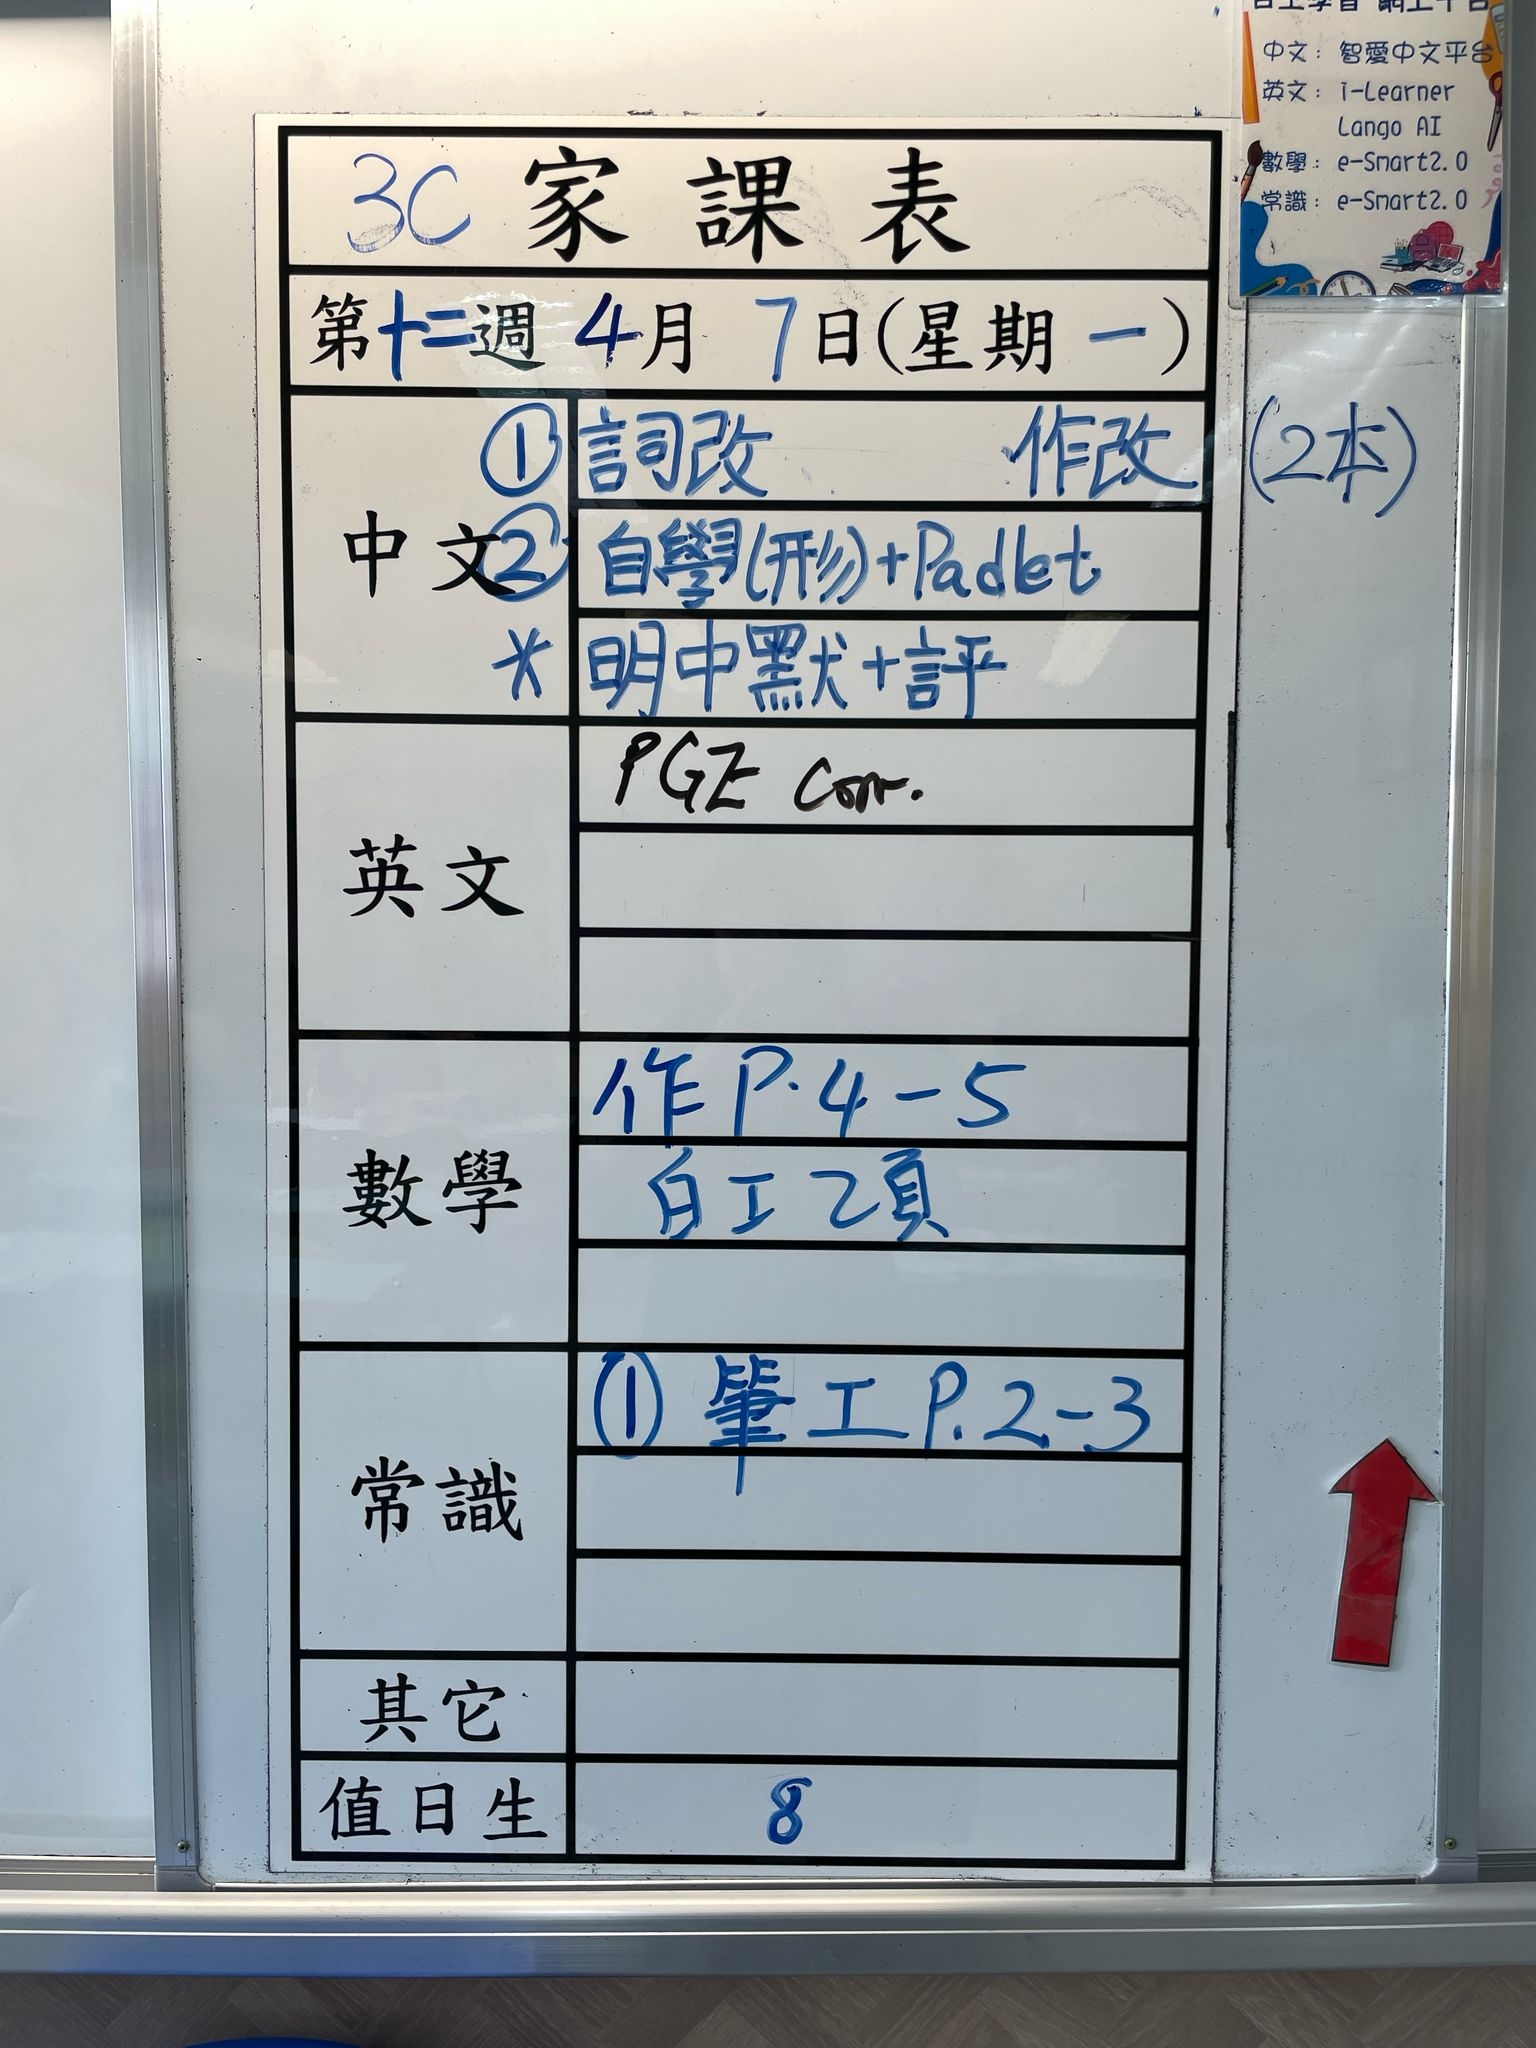 自學習 網上平台
中文：智愛中文平台
英文：i-Learner
Lango AI
數學：e-Smart2.0
常識：e-Smart2.0
3C 家課表
第十二週 4月 7日(星期一)
中文
① 詞改 作改 (2本)
② 自學(形)+Padlet
* 明中默+評
英文
PGE Corr.
數學
作P.4-5
白工乙頁
常識
① 筆工P.2-3
其它
值日生
8